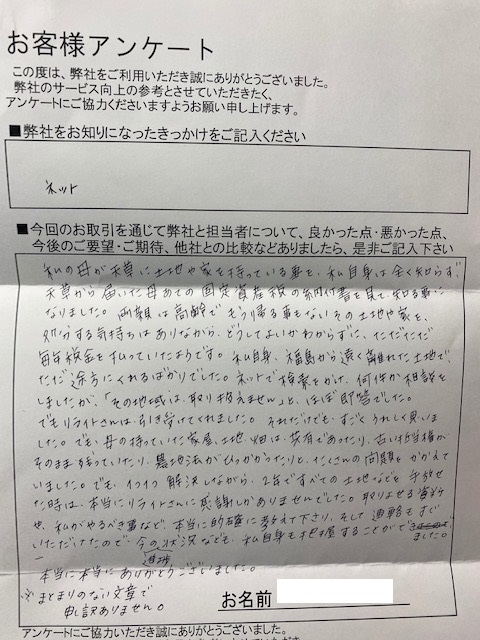 お客様アンケート
この度は、弊社をご利用いただき誠にありがとうございました。
弊社のサービス向上の参考とさせていただきたく、
アンケートにご協力くださいますようお願い申し上げます。
■弊社をお知りになったきっかけをご記入ください
ネット
■今回のお取引を通じて弊社と担当者について、良かった点・悪かった点、
今後のご要望・ご期待、他社との比較などありましたら、是非ご記入下さい
私の母が天草に土地や家を持っている事も、私自身は全く知らず、
天草から届いた母あての固定資産税の納付書を見て、知る事に
なりました。両親は高齢でもう帰る事もないその土地や家を、
処分する気持ちはありながら、どうしてよいかわからずに、ただただ
毎年税金を払っていたようです。私自身、福島から遠く離れた土地で、
ただ途方にくれるばかりでした。ネットで検索をかけ、何件か相談を
しましたが、「その地域は、取り扱えません」と、ほぼ即答でした。
でもリライトさんは、引き受けてくれました。それだけでも、すごくうれしく思いま
した。でも、母の持っていた家屋、土地、畑は、共有であったり、古い抵当権が
そのまま残っていたり、農地法がひっかかったりと、たくさんの問題をかかえて
いました。でも、1つ1つ解決しながら、2年ですべての土地などを手放せ
た時は、本当にリライトさんに感謝しかありませんでした。取りよせる資料
や、私がやるべき事など、本当に的確に教えて下さり、そして連絡もすぐ
いただけたので、今の状況なども、私自身も把握することができました。
進捗
本当に本当にありがとうございました。
※まとまりのない文章で
申し訳ありません。
お名前
アンケートにご協力いただき誠にありがとうございました。